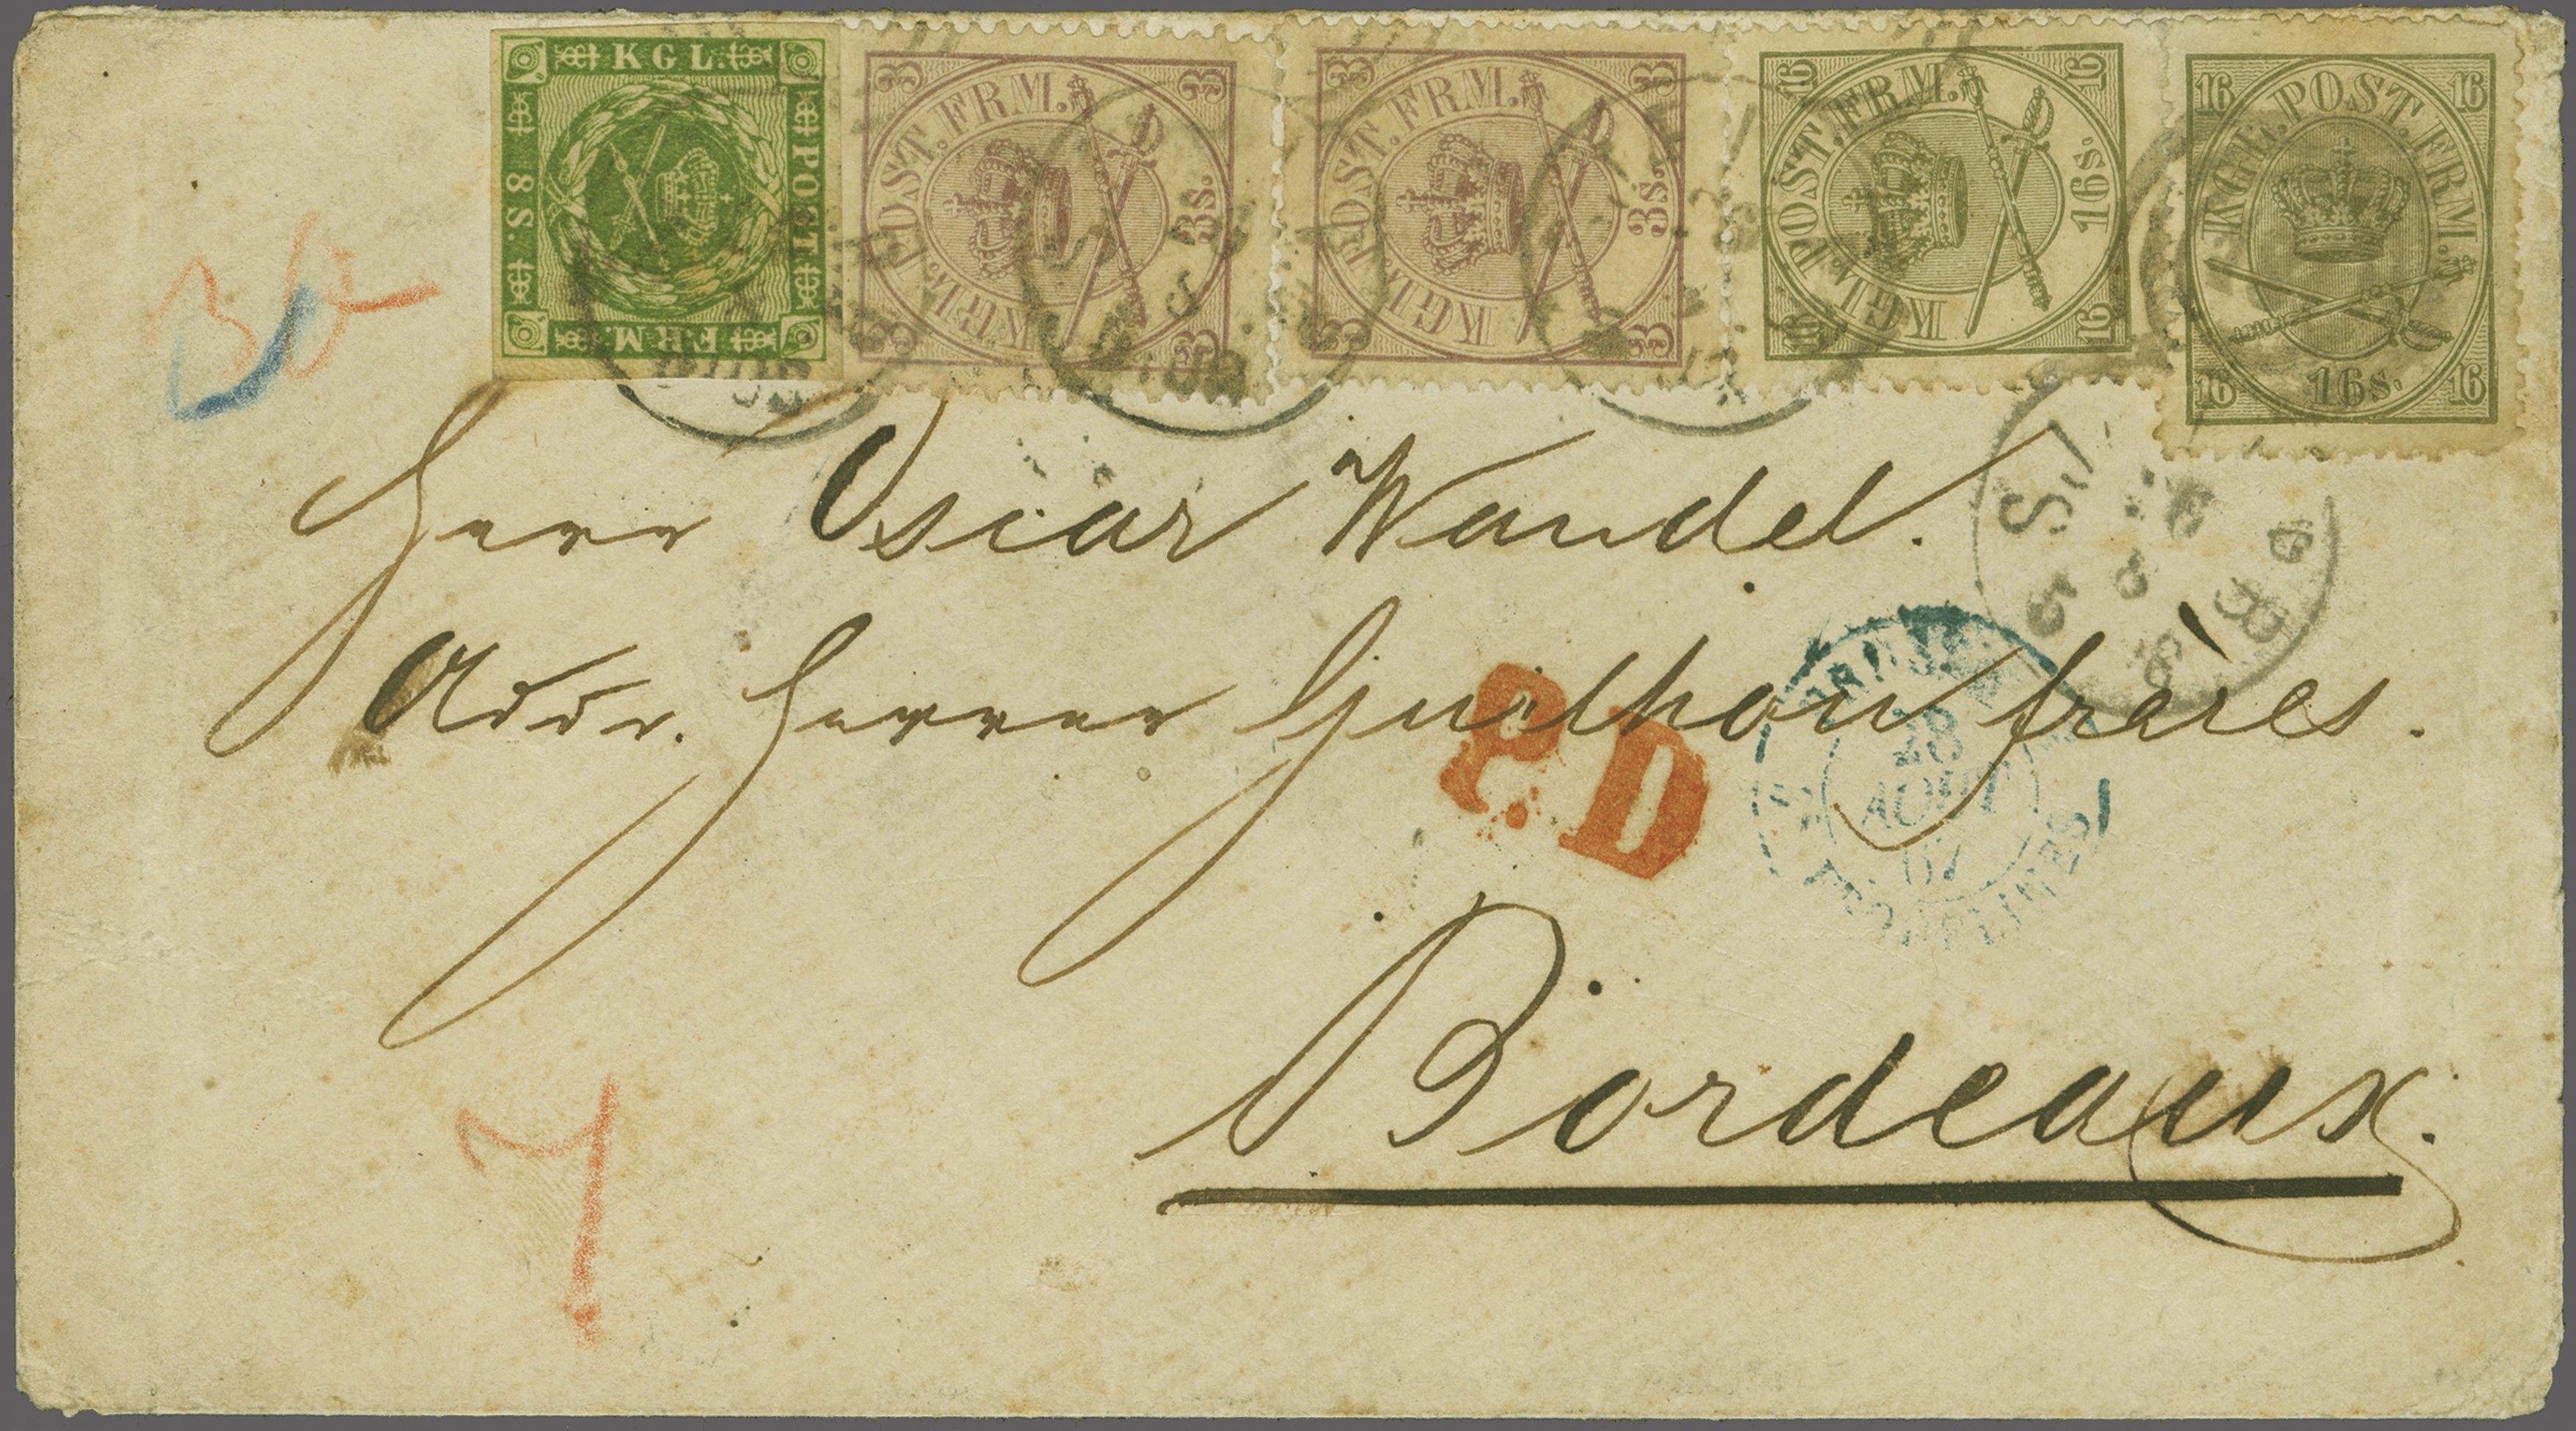 KGL. POST. FRM. 8 S.
3 3 KGL. POST. FRM. 3s. 3 3
3 3 KGL. POST. FRM. 3s. 3 3
16 16 KGL. POST. FRM. 16s. 16 16
16 16 KGL. POST. FRM. 16s. 16 16
Herr Oscar Wandel.
Addr. Herrer Guilhou frères.
P.D
28
AOUT
67
Bordeaux.
7